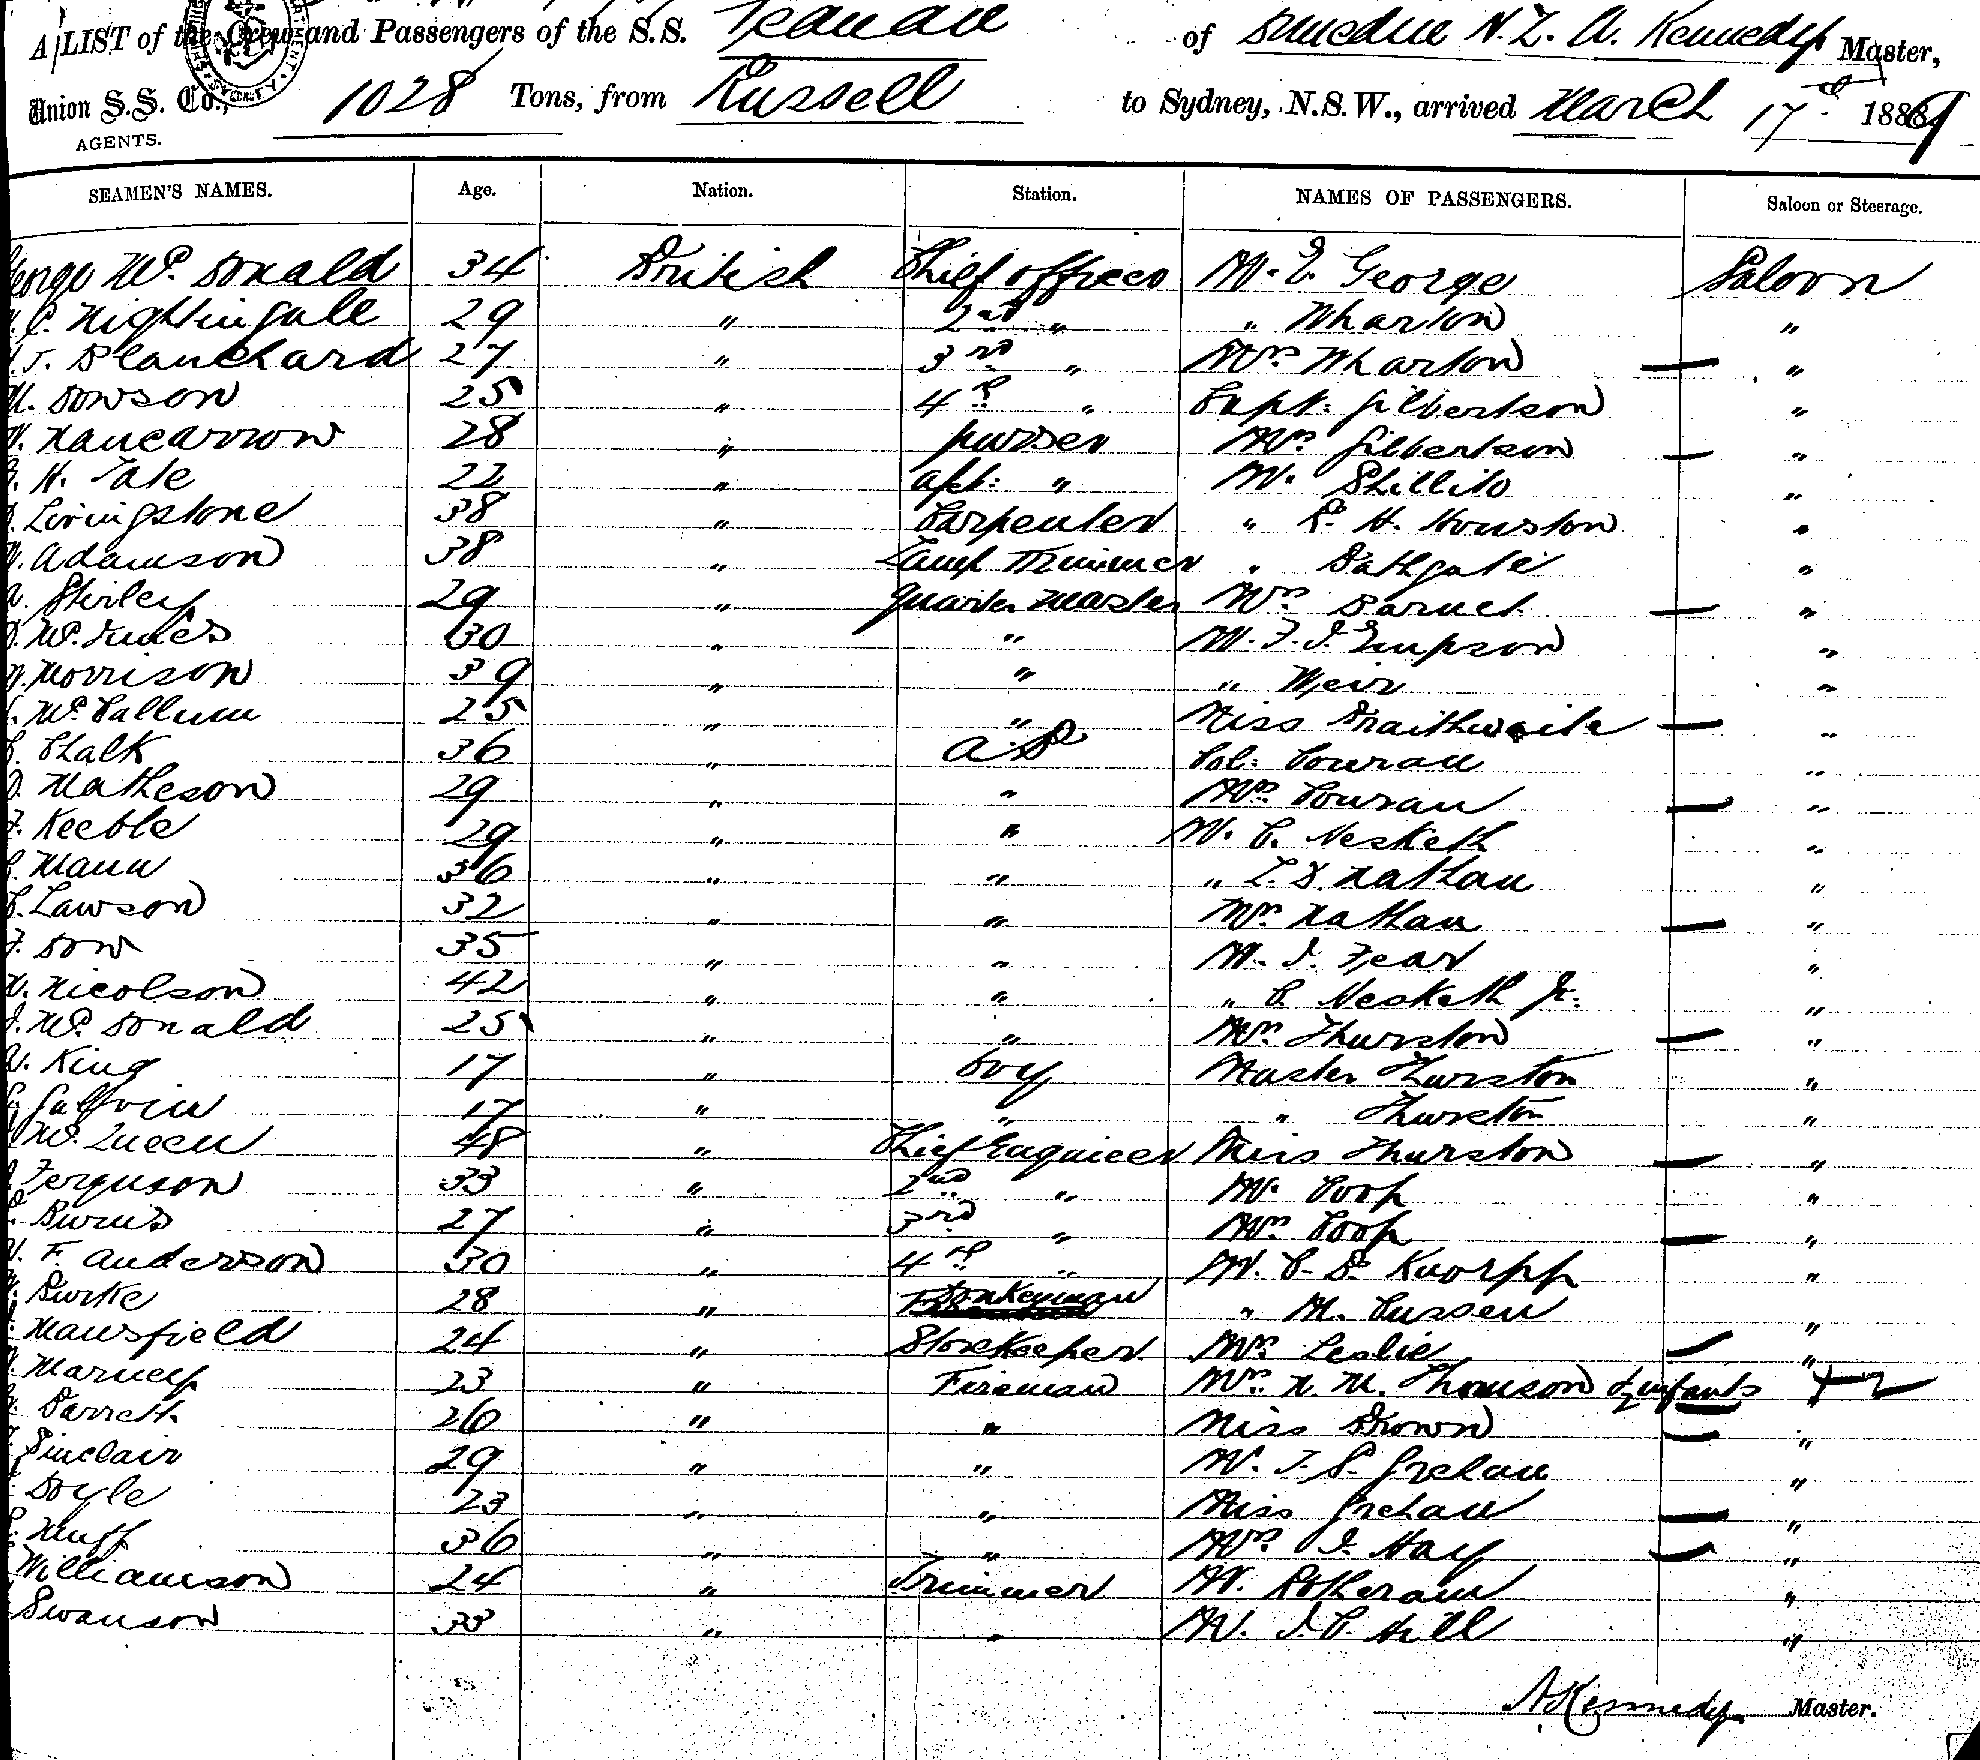 A LIST of the Crew and Passengers of the S.S. Te Anau of Dunedin N.Z. A. Kennedy Master,
Union S.S. Co., 1028 Tons, from Russell to Sydney, N.S.W., arrived March 17th 1889
AGENTS.
SEAMEN'S NAMES. Age. Nation. Station. NAMES OF PASSENGERS. Saloon or Steerage.
George McDonald 34 British Chief officer Mr. E. George Saloon
Nightingale 29 " 2nd " " Wharton "
J. Blanchard 27 " 3rd " Mrs Wharton — "
Dowson 25 " 4th " Capt. Gilbertson "
Nancarrow 28 " purser Mrs Gilbertson — "
H. Tate 22 " asst: " Mr. Shillito "
Livingstone 38 " Carpenter " R. H. Houston "
Adamson 38 " Lamp Trimmer " Bathgate "
Shirley 29 " Quarter Master Mrs Barnet — "
McInnes 30 " " Mr. F. J. Empson "
Morrison 39 " " " Weir "
McCallum 25 " " Miss Braithwaite — "
Chalk 36 " A B Col: Cowran "
Matheson 29 " " Mrs Cowran — "
Keeble 29 " " Mr. C. Hesketh "
Mann 36 " " " L. D. Nathan "
Lawson 32 " " Mrs Nathan — "
Dow 35 " " Mr. J. Fear "
Nicolson 42 " " " C. Hesketh Jr. "
McDonald 25 " " Mrs Thurston — "
King 17 " boy Master Thurston "
Galvin 17 " " " Thurston "
McQueen 48 " Chief Engineer Miss Thurston — "
Ferguson 33 " 2nd " Mr. Coop "
Burns 27 " 3rd " Mrs Coop — "
F. Anderson 30 " 4th " Mr. C. D. Knorpp "
Burke 28 " Donkeyman " M. Cussen "
Mansfield 24 " Storekeeper Mrs Leslie — "
Marney 23 " Fireman Mrs N. M. Thomson & infants
Barrett 26 " " Miss Brown — "
Sinclair 29 " " Mr. T. S. Grehan "
Doyle 23 " " Miss Grehan — "
Huff 36 " " Mrs J. Hay — "
Williamson 24 " Trimmer Mr. Rotheram "
Swanson 33 " " Mr. J. C. Hill "
A Kennedy Master.